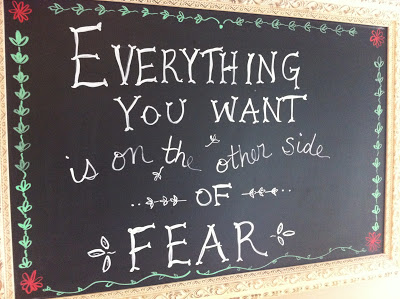 EVERYTHING
YOU WANT
is on the other side
OF
FEAR